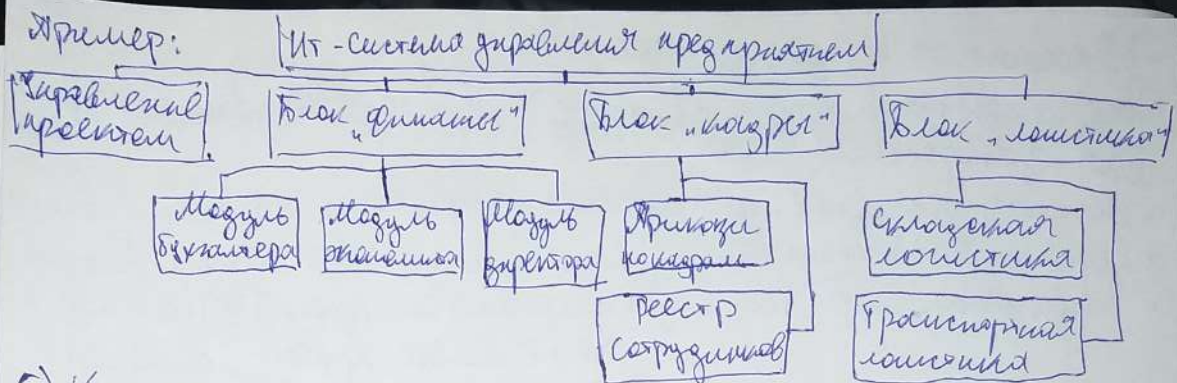 Пример:
ИТ-система управления предприятием
Управление
проектом.
Блок "Финансы"
Блок "кадры"
Блок "логистика"
Модуль
бухгалтера
Модуль
экономика
Модуль
директора
Приказы
по кадрам
Складская
логистика
реестр
сотрудников
Транспортная
логистика